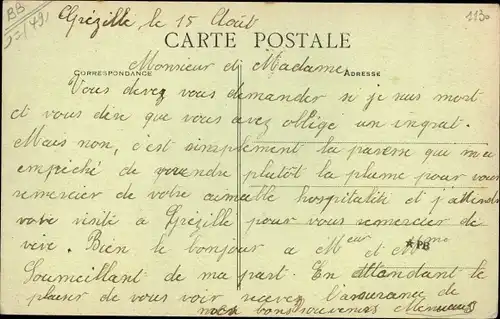 BB
1130
Grézille, le 15 Août
CARTE POSTALE
CORRESPONDANCE
ADRESSE
Monsieur et Madame
Vous devez vous demander si je suis mort
et vous dire que vous avez obligé un ingrat.
Mais non, c'est simplement la paresse qui m'a
empêché de prendre plutôt la plume pour vous
remercier de votre aimable hospitalité et j'attends
votre visite à Grézille pour vous remercier de
vive. Bien le bonjour a Mr et Mme
PB
Soumeillant de ma part. En attendant le
plaisir de vous voir recevez l'assurance de
mes bons souvenirs